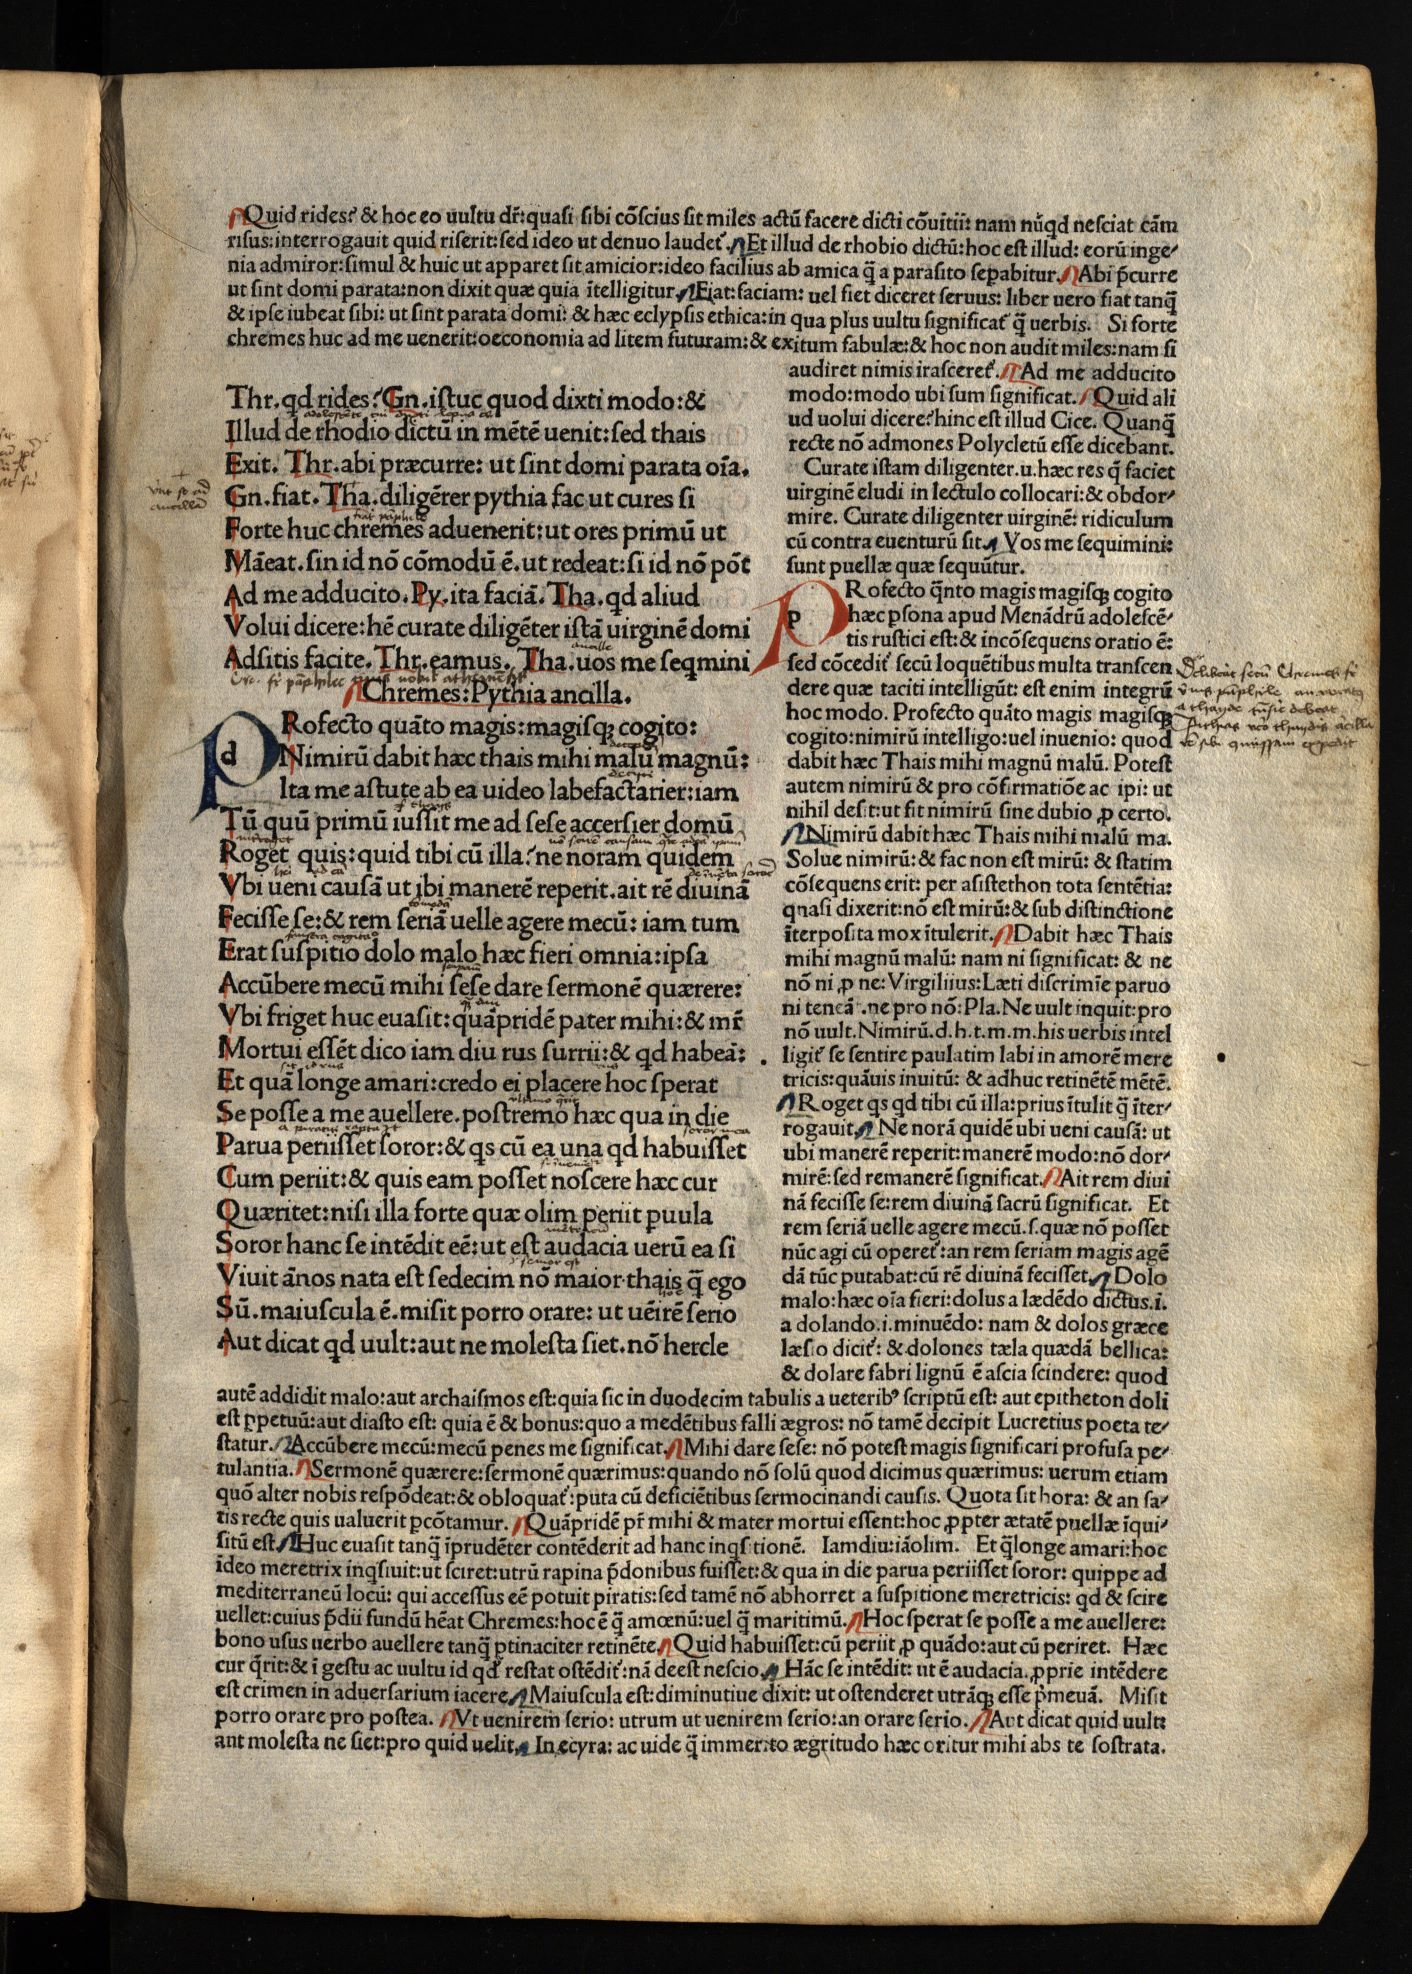 Quid rides? & hoc eo uultu dr̃: quasi sibi cõscius sit miles actũ facere dicti cõuitii: nam nũqd nesciat cãm
risus: interrogauit quid riserit: sed ideo ut denuo laudet᷑. Et illud de rhobio dictũ: hoc est illud: eorũ inge⸗
nia admiror: simul & huic ut apparet sit amicior: ideo facilius ab amica q̃ a parasito sepabitur. Abi p̃curre
ut sint domi parata: non dixit quæ quia ĩtelligitur. Fiat: faciam: uel fiet diceret seruus: liber uero fiat tanq̃
& ipse iubeat sibi: ut sint parata domi: & hæc eclypsis ethica: in qua plus uultu significat᷑ q̃ uerbis. Si forte
chremes huc ad me uenerit: oeconomia ad litem futuram: & exitum fabulæ: & hoc non audit miles: nam si
audiret nimis irasceret᷑. Ad me adducito
modo: modo ubi sum significat. Quid ali
ud uolui dicere? hinc est illud Cice. Quanq̃
recte nõ admones Polycletũ esse dicebant.
Curate istam diligenter. u. hæc res q̃ faciet
uirginẽ eludi in lectulo collocari: & obdor⸗
mire. Curate diligenter uirginẽ: ridiculum
cũ contra euenturũ sit. Vos me sequimini:
sunt puellæ quæ sequũtur.
Thr. qd rides? Gn. istuc quod dixti modo: &
Illud de rhodio dictũ in mẽtẽ uenit: sed thais
Exit. Thr. abi præcurre: ut sint domi parata oĩa.
Gn. fiat. Tha. diligẽrer pythia fac ut cures si
Forte huc chremes aduenerit: ut ores primũ ut
Mãeat. sin id nõ cõmodũ ẽ. ut redeat: si id nõ põt
Ad me adducito. Py. ita faciã. Tha. qd aliud
Volui dicere: hẽ curate diligẽter istã uirginẽ domi
Adsitis facite. Thr. eamus. Tha. uos me seqmini
Chremes: Pythia ancilla.
p
Rofecto quãto magis: magisq; cogito:
Nimirũ dabit hæc thais mihi malũ magnũ:
Ita me astute ab ea uideo labefactarier: iam
Tũ quũ primũ iussit me ad sese accersier domũ
Roget quis: quid tibi cũ illa? ne noram quidem
Vbi ueni causã ut ibi manerẽ reperit. ait rẽ diuinã
Fecisse se: & rem seriã uelle agere mecũ: iam tum
Erat suspitio dolo malo hæc fieri omnia: ipsa
Accũbere mecũ mihi sese dare sermonẽ quærere:
Vbi friget huc euasit: quãpridẽ pater mihi: & mr̃
Mortui essẽt dico iam diu rus surrii: & qd habeã:
Et quã longe amari: credo ei placere hoc sperat
Se posse a me auellere. postremo hæc qua in die
Parua periisset soror: & qs cũ ea una qd habuisset
Cum periit: & quis eam posset noscere hæc cur
Quæritet: nisi illa forte quæ olim periit puula
Soror hanc se intẽdit eẽ: ut est audacia uerũ ea si
Viuit ãnos nata est sedecim nõ maior. thais q̃ ego
Sũ. maiuscula ẽ. misit porro orare: ut uẽirẽ serio
Aut dicat qd uult: aut ne molesta siet. nõ hercle
p
Rofecto q̃nto magis magisq; cogito
hæc psona apud Menãdrũ adolescẽ⸗
tis rustici est: & incõsequens oratio ẽ:
sed cõcedit᷑ secũ loquẽtibus multa transcen
dere quæ taciti intelligũt: est enim integrũ
hoc modo. Profecto quãto magis magisq;
cogito: nimirũ intelligo: uel inuenio: quod
dabit hæc Thais mihi magnũ malũ. Potest
autem nimirũ & pro cõfirmatiõe ac ipi: ut
nihil desit: ut fit nimirũ sine dubio ꝓ certo.
Nimirũ dabit hæc Thais mihi malũ ma.
Solue nimirũ: & fac non est mirũ: & statim
cõsequens erit: per asistethon tota sentẽtia:
quasi dixerit: nõ est mirũ: & sub distinctione
ĩterposita mox ĩtulerit. Dabit hæc Thais
mihi magnũ malũ: nam ni significat: & ne
nõ ni ꝓ ne: Virgiliius: Læti discrimĩe paruo
ni teneã. ne pro nõ: Pla. Ne uult inquit: pro
nõ uult. Nimirũ. d. h. t. m. m. his uerbis intel
ligit᷑ se sentire paulatim labi in amorẽ mere
tricis: quãuis inuitũ: & adhuc retinẽtẽ mẽtẽ.
Roget qs qd tibi cũ illa: prius ĩtulit q̃ ĩter⸗
rogauit. Ne norã quidẽ ubi ueni causã: ut
ubi manerẽ reperit: manerẽ modo: nõ dor⸗
mirẽ: sed remanerẽ significat. Ait rem diui
nã fecisse se: rem diuinã sacrũ significat. Et
rem seriã uelle agere mecũ. s. quæ nõ posset
nũc agi cũ operet᷑: an rem seriam magis agẽ
dã tũc putabat: cũ rẽ diuinã fecisset. Dolo
malo: hæc oĩa fieri: dolus a lædẽdo dictus. i.
a dolando. i. minuẽdo: nam & dolos græce
læsio dicit᷑: & dolones tæla quædã bellica:
& dolare fabri lignũ ẽ ascia scindere: quod
autẽ addidit malo: aut archaismos est: quia sic in duodecim tabulis a ueterib⁹ scriptũ est: aut epitheton doli
est ꝑpetuũ: aut diasto est: quia ẽ & bonus: quo a medẽtibus falli ægros: nõ tamẽ decipit Lucretius poeta te⸗
statur. Accũbere mecũ: mecũ penes me significat. Mihi dare sese: nõ potest magis significari profusa pe⸗
tulantia. Sermonẽ quærere: sermonẽ quærimus: quando nõ solũ quod dicimus quærimus: uerum etiam
quõ alter nobis respõdeat: & obloquat᷑: puta cũ deficiẽtibus sermocinandi causis. Quota sit hora: & an sa⸗
tis recte quis ualuerit ꝑcõtamur. Quãpridẽ pr̃ mihi & mater mortui essent: hoc ꝓpter ætatẽ puellæ ĩqui⸗
situ est. Huc euasit tanq̃ ĩprudẽter contẽderit ad hanc inqsitionẽ. Iamdiu: iãolim. Et q̃longe amari: hoc
ĩdeo meretrix inqsiuit: ut sciret: utrũ rapina p̃donibus fuisset: & qua in die parua periisset soror: quippe ad
mediterraneũ locũ: qui accessus eẽ potuit piratis: sed tamẽ nõ abhorret a suspitione meretricis: qd & scire
uellet: cuius p̃dii fundũ hẽat Chremes: hoc ẽ q̃ amœnũ: uel q̃ maritimũ. Hoc sperat se posse a me auellere:
bono usus uerbo auellere tanq̃ ꝑtinaciter retinẽte. Quid habuisset: cũ periit ꝓ quãdo: aut cũ periret. Hæc
cur q̃rit: & ĩ gestu ac uultu id qđ restat ostẽdit᷑: nã deest nescio. Hãc se intẽdit: ut ẽ audacia. ꝓprie intẽdere
est crimen in aduersarium iacere. Maiuscula est: diminutiue dixit: ut ostenderet utrãq; esse p̃meuã. Misit
porro orare pro postea. Vt uenirem serio: utrum ut uenirem serio: an orare serio. Aut dicat quid uult:
aut molesta ne siet: pro quid uelit. In ecyra: ac uide q̃ immerito ægritudo hæc oritur mihi abs te sostrata.